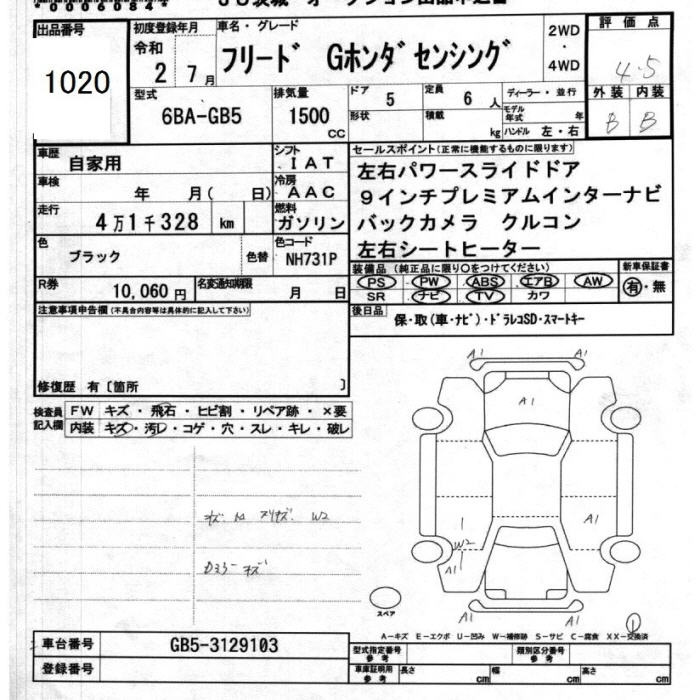 00060844
出品番号
1020
初度登録年月
令和
2 7月
車名・グレード
フリード Gホンダセンシング
2WD
・
4WD
評価点
4.5
外装 内装
B B
型式
6BA-GB5
排気量
1500
cc
ドア
5
定員
6人
形状
積載
kg
ディーラー・並行
モデル年式 年
ハンドル 左・右
車歴
自家用
シフト
IAT
車検
年 月( 日)
冷房
AAC
走行
4万1千328 km
燃料
ガソリン
色
ブラック
色替
色コード
NH731P
R券
10,060円
名変通知期限
月 日
セールスポイント(正常に機能するものに限ります)
左右パワースライドドア
9インチプレミアムインターナビ
バックカメラ クルコン
左右シートヒーター
装備品(純正品に限り○をつけてください)
PS PW ABS エアB AW
SR ナビ TV カワ
新車保証書
有・無
後日品
保・取(車・ナビ)・ドラレコSD・スマートキー
注意事項申告欄(不具合内容等は具体的に記入して下さい)
修復歴 有〔箇所 〕
検査員記入欄
FW キズ・飛石・ヒビ割・リペア跡・×要
内装 キズ・汚レ・コゲ・穴・スレ・キレ・破レ
W2
キズ
A1 A1
A1
A1
W2
A1
A1 A1
スペア
1
A―キズ E―エクボ U―凹み W―補修跡 S―サビ C―腐食 XX―交換済
車台番号
GB5-3129103
登録番号
型式指定番号
参考
類別区分番号
参考
車庫証明用
参考
長さ cm
幅 cm
高さ cm